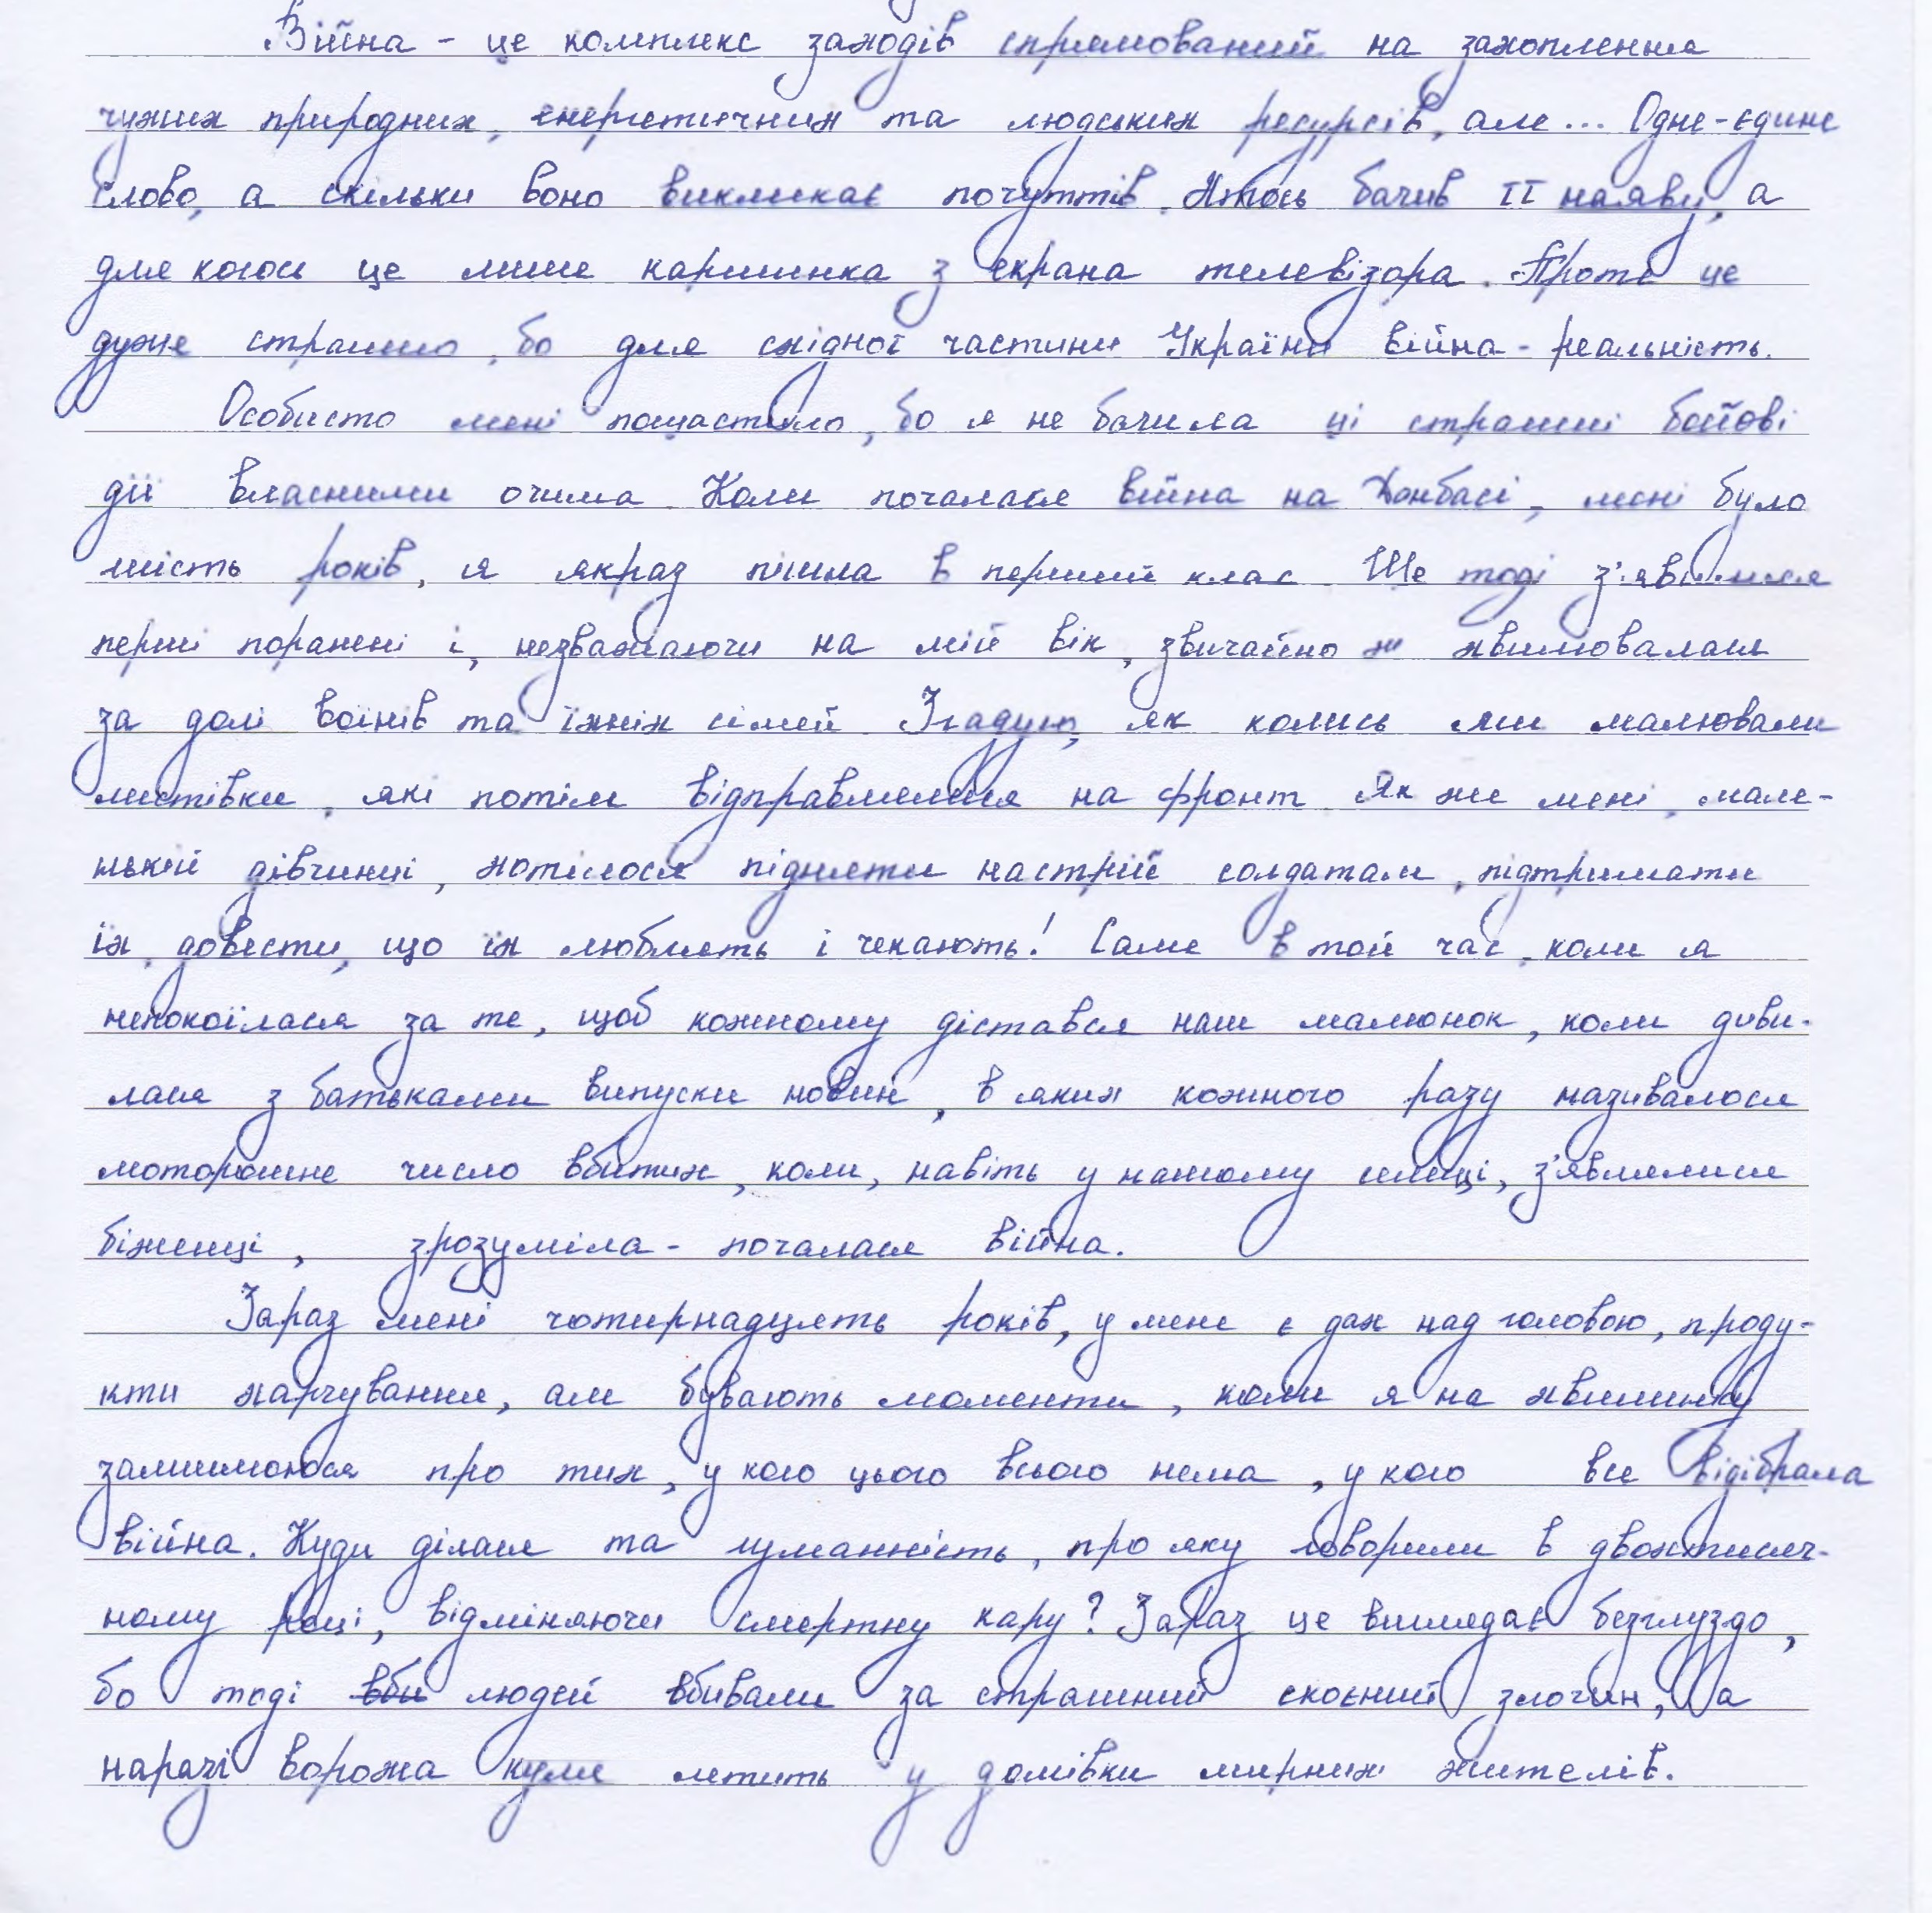 Війна - це комплекс заходів спрямований на захоплення
чужих природних, енергетичних та людських ресурсів, але... Одне-єдине
слово, а скільки воно викликає почуттів. Хтось бачив її наяву, а
для когось це лише картинка з екрана телевізора. Проте це
дуже страшно, бо для східної частини України війна - реальність.
Особисто мені пощастило, бо я не бачила ці страшні бойові
дії власними очима. Коли почалася війна на Донбасі, мені було
шість років, я якраз пішла в перший клас. Ще тоді з'явилися
перші поранені і, незважаючи на мій вік, звичайно ж хвилювалася
за долі воїнів та їхніх сімей. Згадую, як колись ми малювали
листівки, які потім відправлялися на фронт. Як же мені, мале-
нькій дівчинці, хотілося підняти настрій солдатам, підтримати
їх, довести, що їх люблять і чекають! Саме в той час, коли я
непокоїлася за те, щоб кожному дістався наш малюнок, коли диви-
лася з батьками випуски новин, в яких кожного разу називалося
моторошне число вбитих, коли, навіть у нашому селищі, з'являлися
біженці, зрозуміла - почалася війна.
Зараз мені чотирнадцять років, у мене є дах над головою, проду-
кти харчування, але бувають моменти, коли я на хвилинку
замислююся про тих, у кого цього всього нема, у кого все відібрала
війна. Куди ділася та гуманність, про яку говорили в двохтисяч-
ному році, відміняючи смертну кару? Зараз це виглядає безглуздо,
бо тоді вби людей вбивали за страшний скоєний злочин, а
наразі ворожа куля летить у домівки мирних жителів.